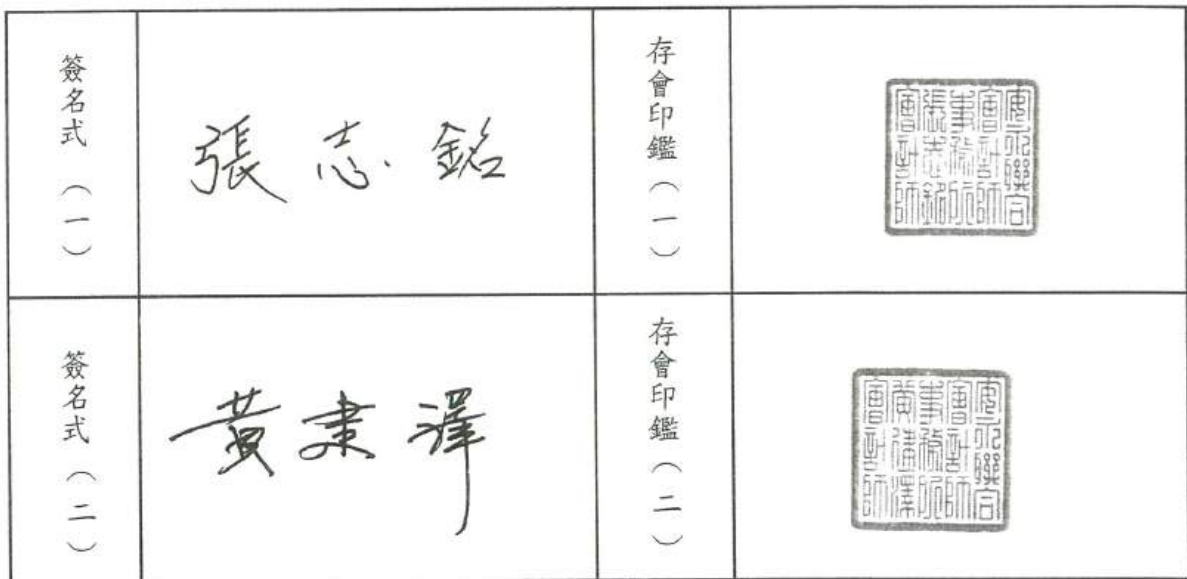 簽名式(一)
張志銘
存會印鑑(一)
安永聯合
會計師
事務所
張志銘
會計師
簽名式(二)
黃建澤
存會印鑑(二)
安永聯合
會計師
事務所
黃建澤
會計師